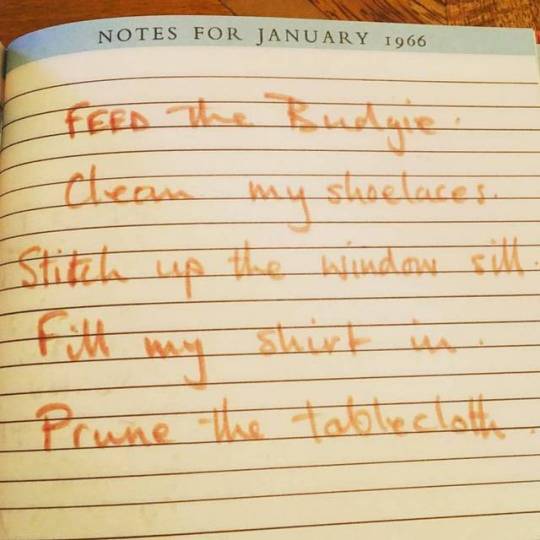 NOTES FOR JANUARY 1966
FEED the Budgie.
Clean my shoelaces.
Stitch up the window sill.
Fill my shirt in.
Prune the tablecloth.